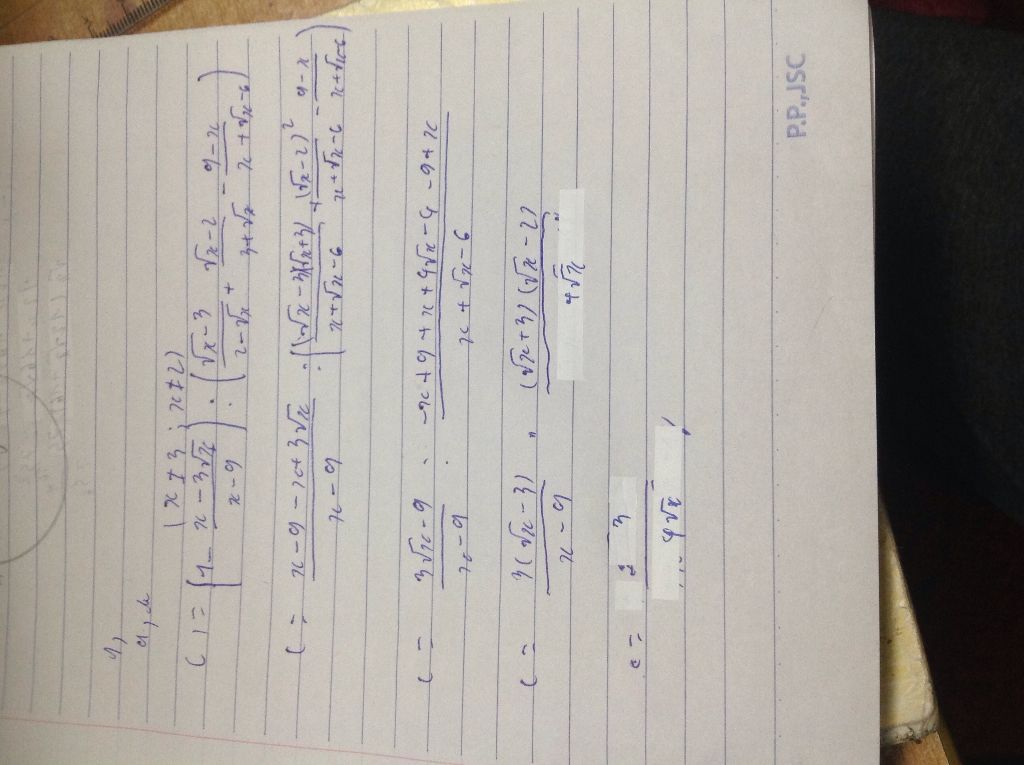 1,
a, đk
(x ≠ 3 ; x ≠ 2)
C = (1 - \frac{x - 3√x}{x - 9}) : (\frac{√x - 3}{2 - √x} + \frac{√x - 2}{3 + √x} - \frac{9 - x}{x + √x - 6})
C = \frac{x - 9 - x + 3√x}{x - 9} : (\frac{(√x - 3)(√x + 3)}{x + √x - 6} + \frac{(√x - 2)²}{x + √x - 6} - \frac{9 - x}{x + √x - 6})
C = \frac{3√x - 9}{x - 9} : \frac{-x + 9 + x + 4√x - 4 - 9 + x}{x + √x - 6}
C = \frac{3(√x - 3)}{x - 9} . \frac{(√x + 3)(√x - 2)}{4√x}
C = \frac{3}{4√x}
P.P.,JSC